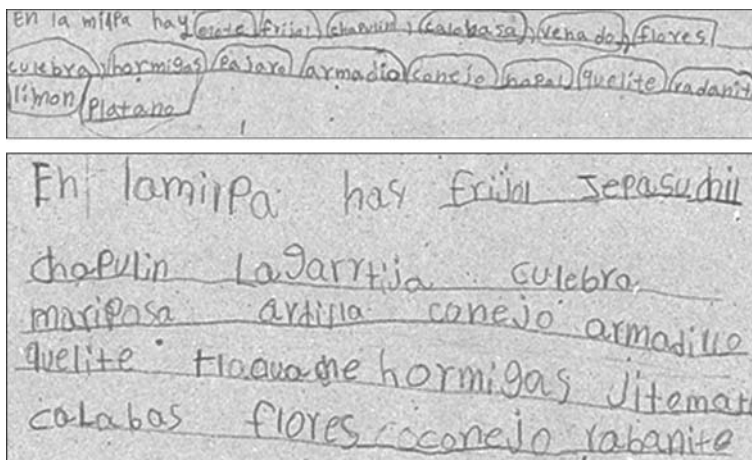 En la milpa hay elote frijol, chapulin, calabasa, venado, flores
culebra, hormigas Pajaro armadio conejo nopal quelite radanit
limon Platano
En lamilpa hay frijol sepasuchil
chapulin Lagarrtija culebra
mariposa ardilla conejo armadillo
quelite tlaquache hormigas Jitomat
calabas flores coconejo rabanite